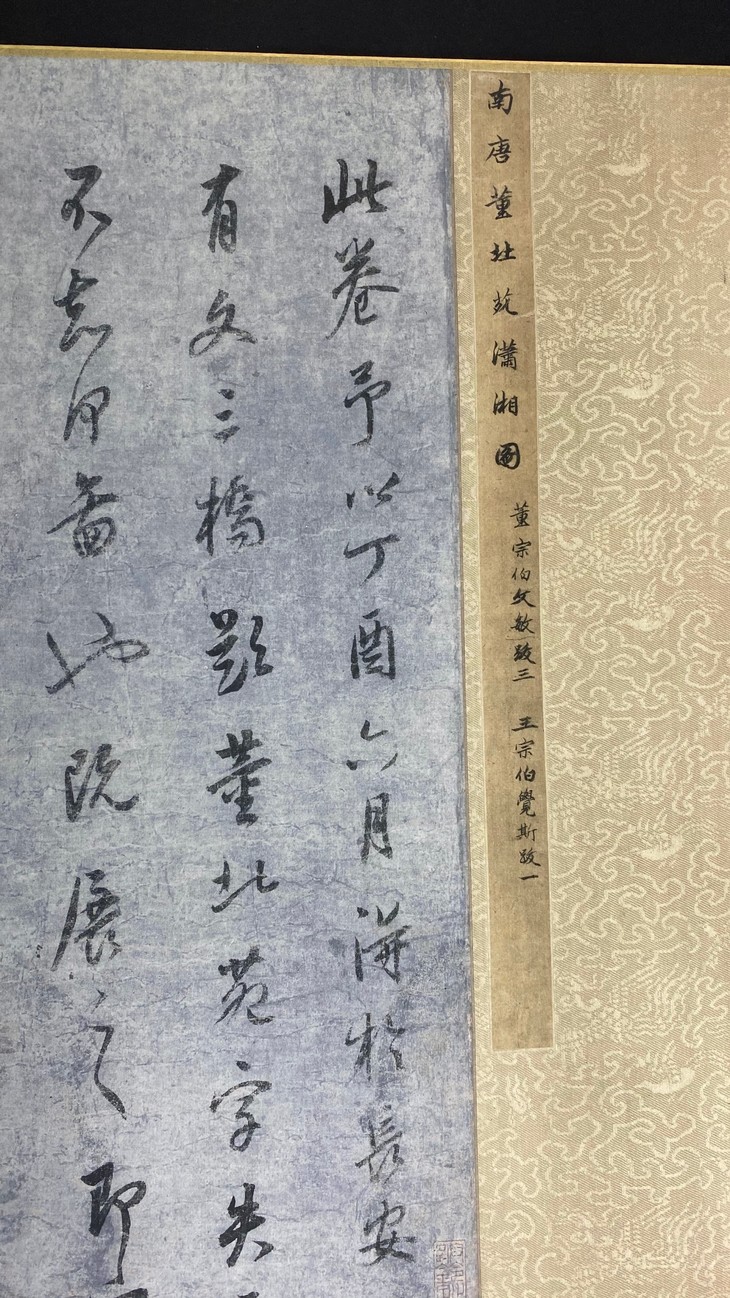 南唐董北苑瀟湘圖
董宗伯文敏跋三 王宗伯覺斯跋一
此卷予以丁酉六月得於長安
有文三橋題董北苑字失
不知何啚也既展之即